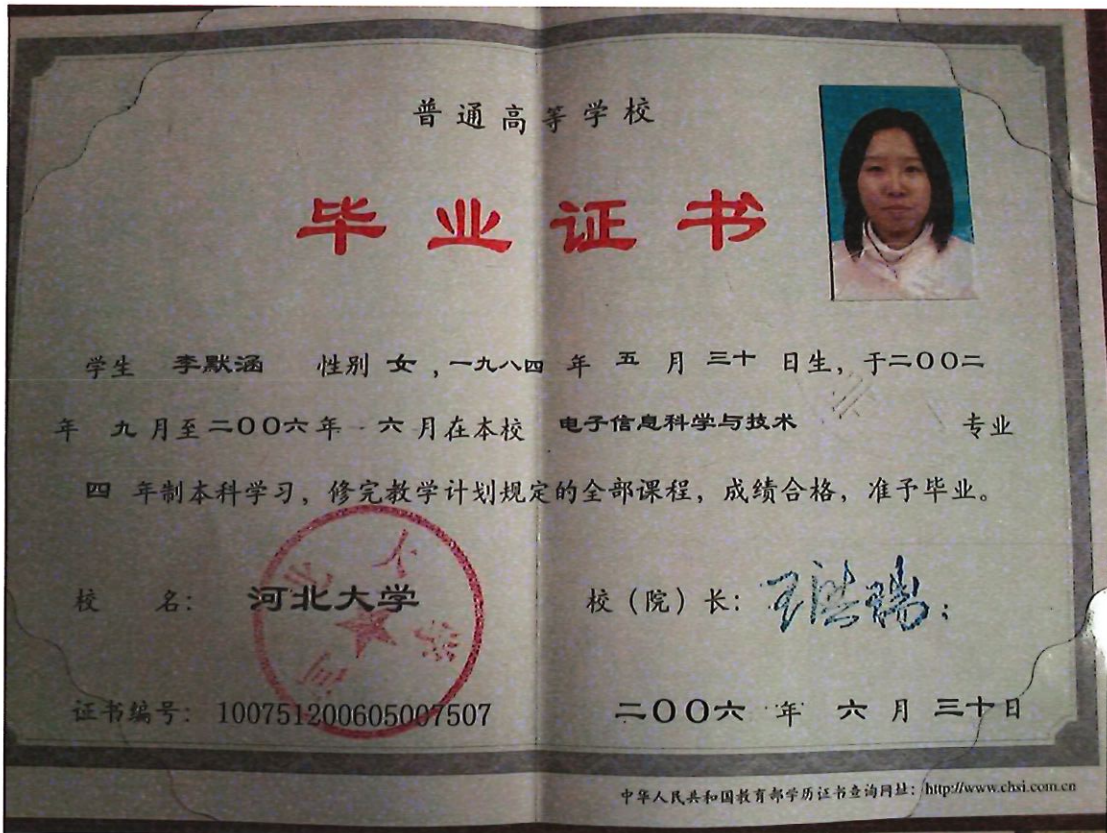 普通高等学校
毕业证书
学生 李默涵 性别 女，一九八四 年 五 月 三十 日生，于二〇〇二
年 九 月至二〇〇六年 六 月在本校 电子信息科学与技术 专业
四 年制本科学习，修完教学计划规定的全部课程，成绩合格，准予毕业。
校 名：河北大学
校（院）长：
证书编号：100751200605007507
二〇〇六 年 六 月 三十日
中华人民共和国教育部学历证书查询网址：http://www.chsi.com.cn